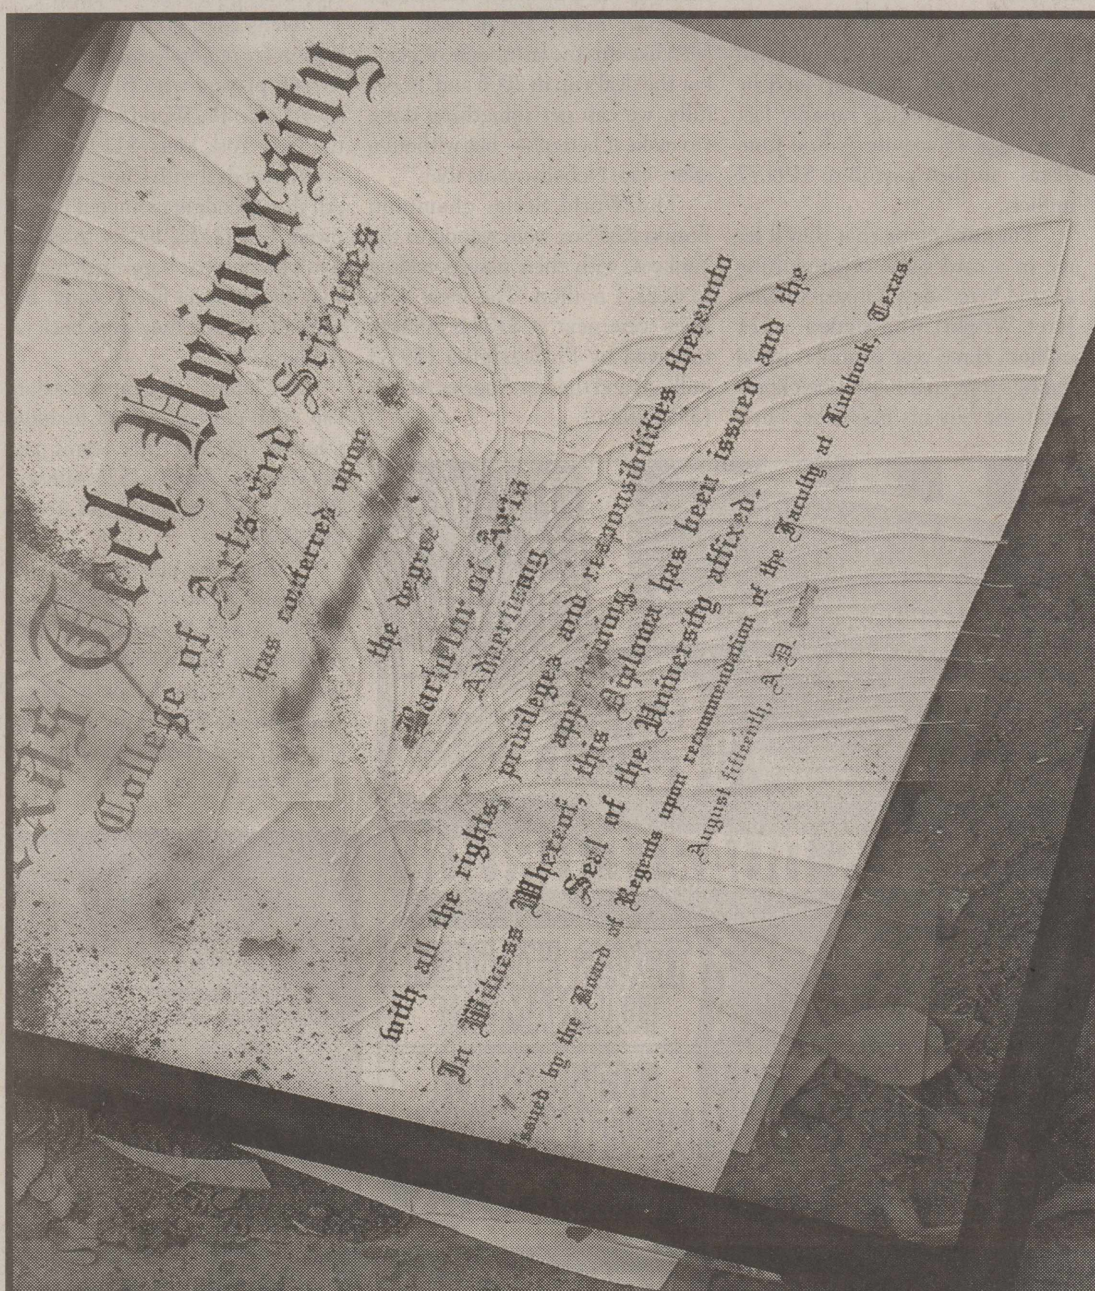 Tech University
College of Arts and Sciences
has conferred upon
the degree
Bachelor of Arts
Advertising
with all the rights, privileges and responsibilities thereunto
appertaining.
In Witness Whereof, this Diploma has been issued and the
Seal of the University affixed.
Issued by the Board of Regents upon recommendation of the Faculty at Lubbock, Texas.
August fifteenth, A.D.